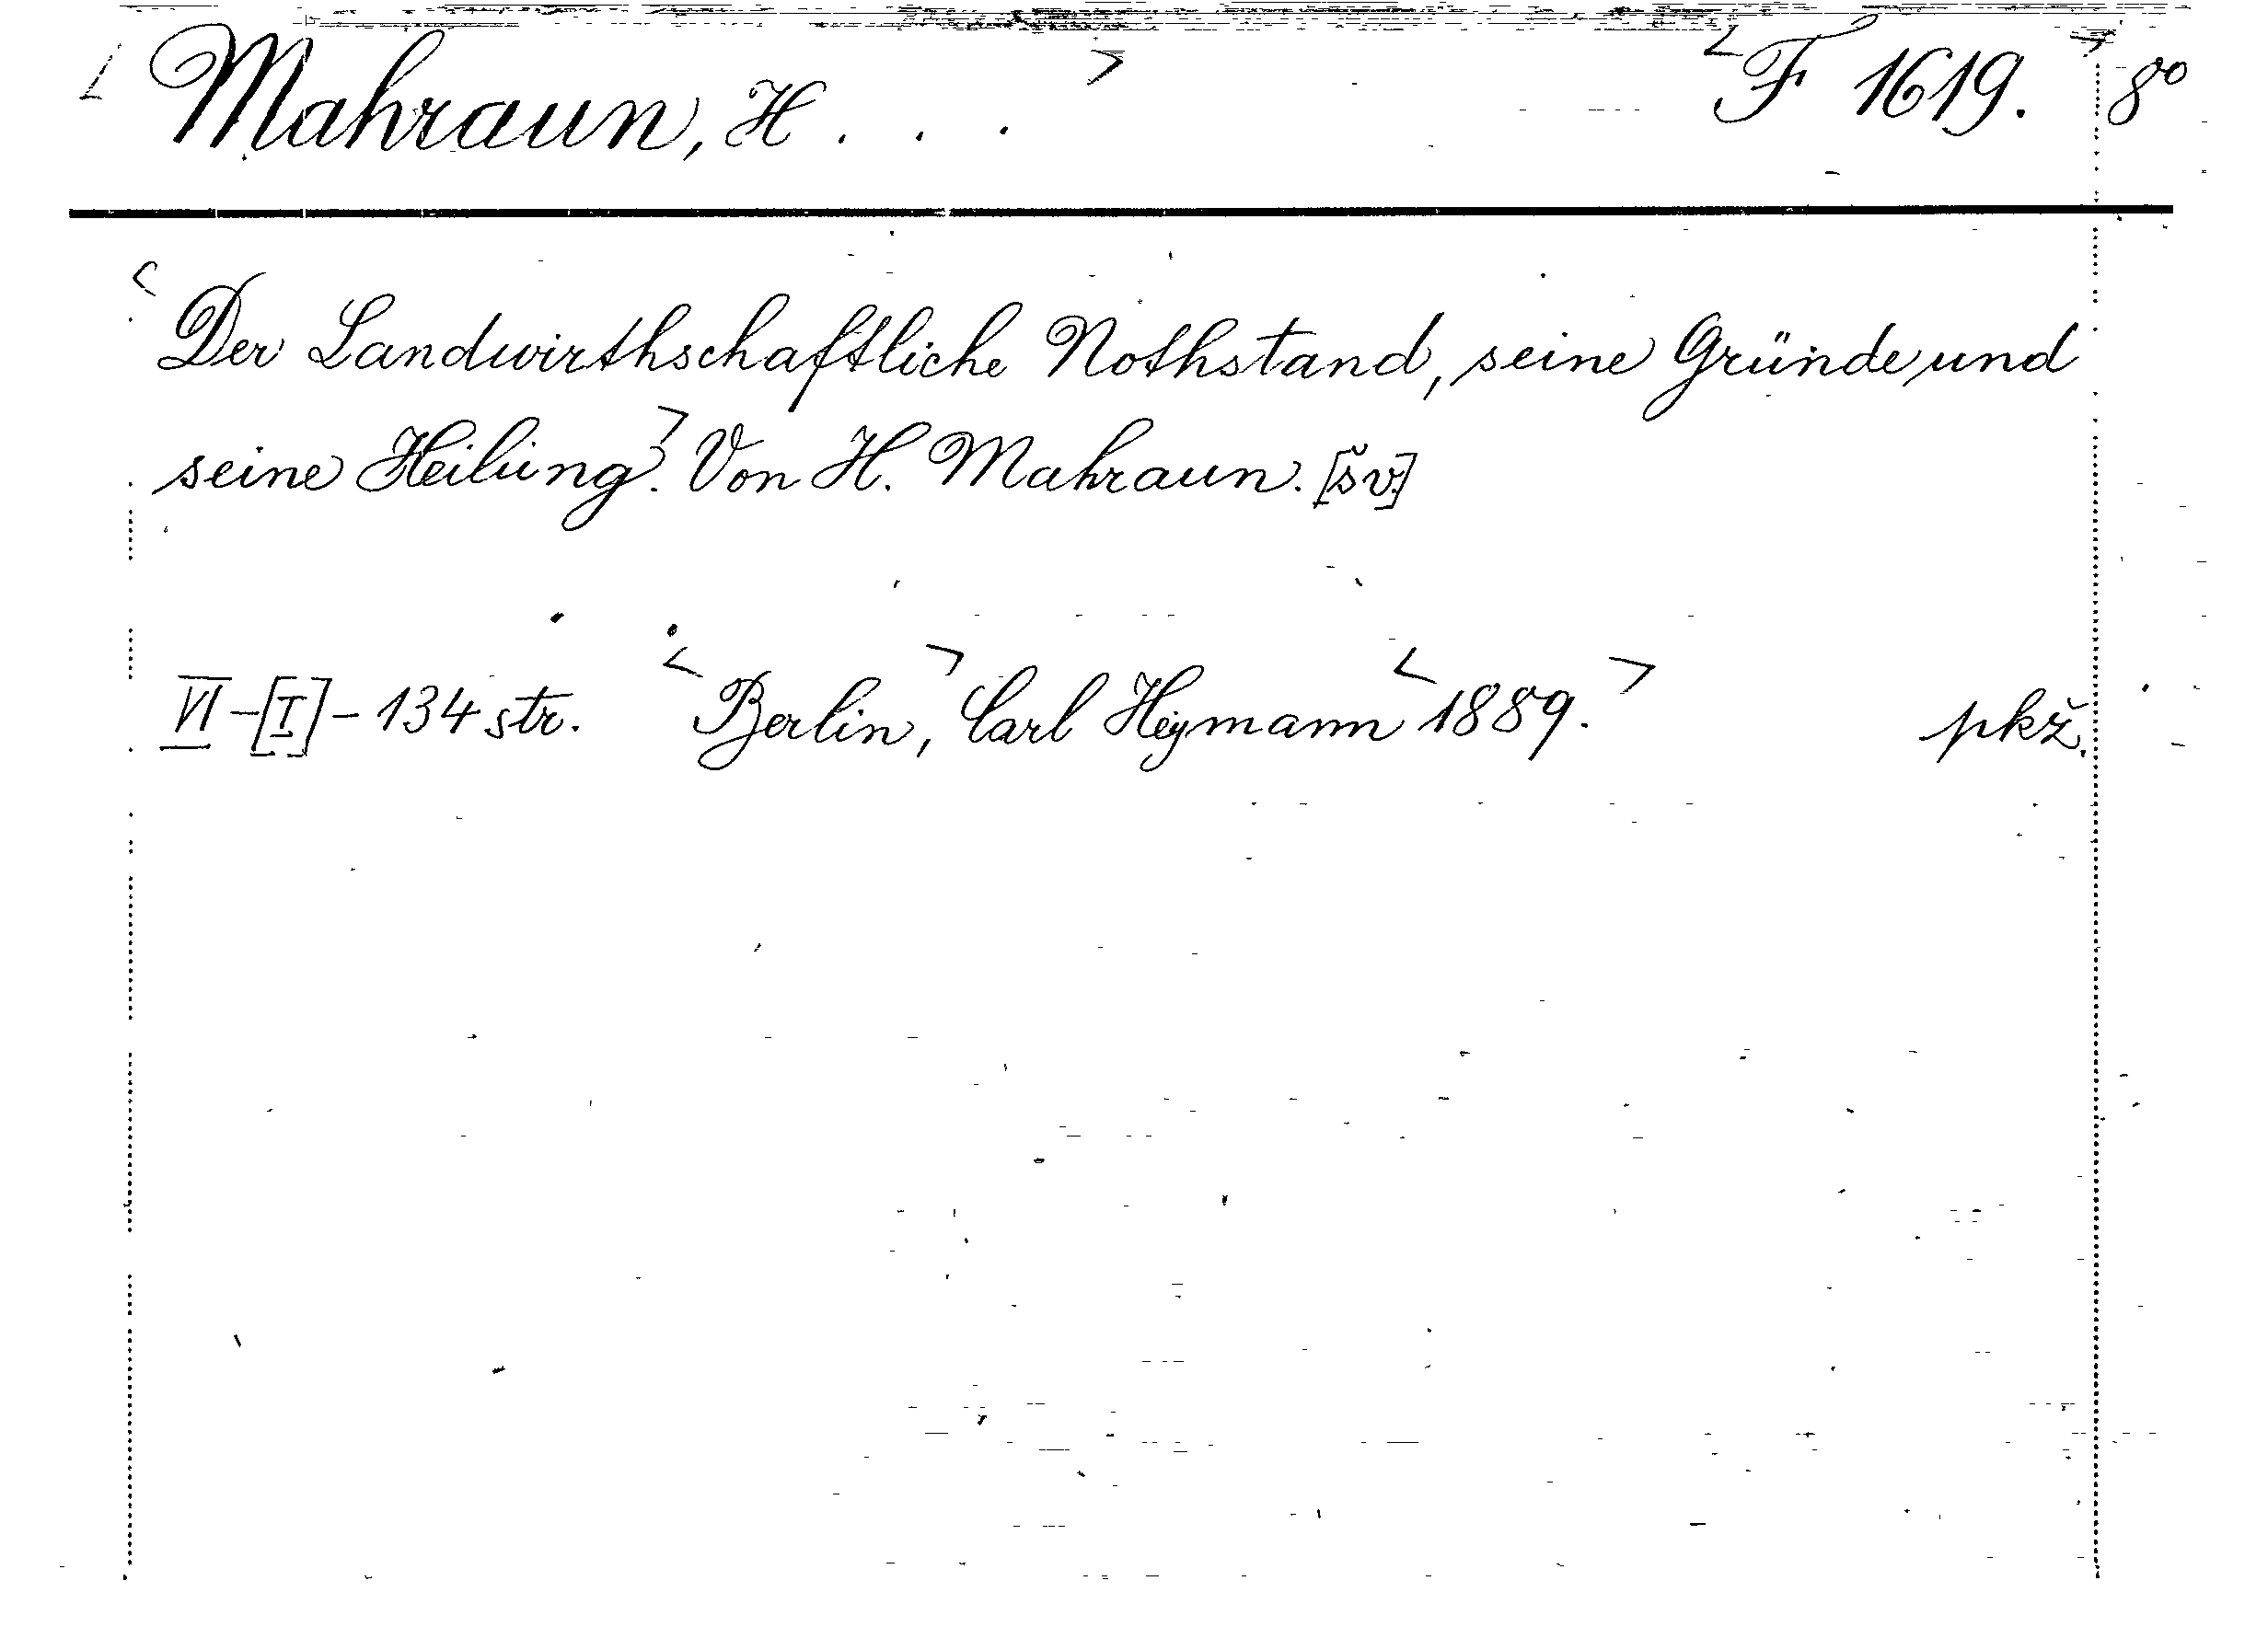 < Mahraun, H . . . > < F 1619. > 8°
< Der Landwirthschaftliche Nothstand, seine Gründe und
seine Heilung. > Von H. Mahraun. [šv.]
VI-[I]-134 str. < Berlin, > Carl Heymann < 1889. > pkž.